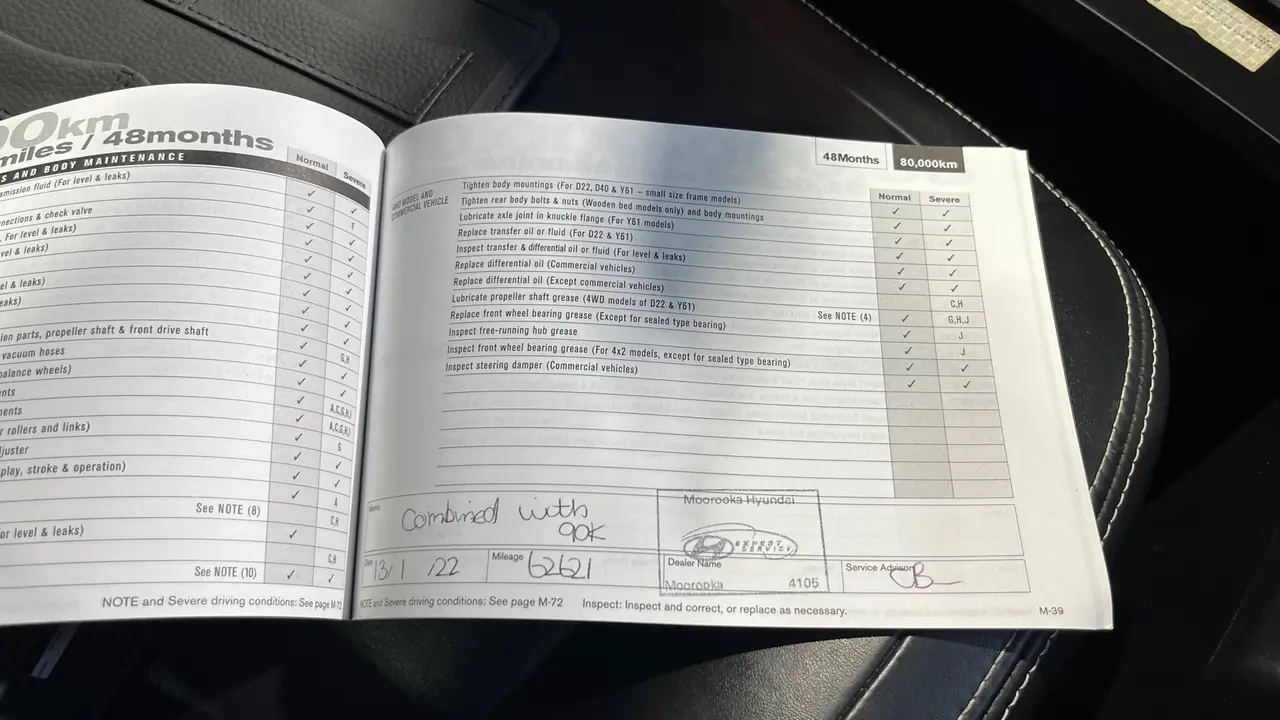 00km
miles / 48months
S AND BODY MAINTENANCE
Normal
Severe
smission fluid (For level & leaks)
✓
✓
nections & check valve
✓
F
. For level & leaks)
✓
✓
vel & leaks)
✓
✓
el & leaks)
eaks)
ion parts, propeller shaft & front drive shaft
vacuum hoses
G,H
balance wheels)
ents
A,C,G,H,I
ments
A,C,G,H,I
r rollers and links)
G
djuster
play, stroke & operation)
See NOTE (8)
C,H
or level & leaks)
✓
C,H
See NOTE (10)
✓
✓
NOTE and Severe driving conditions: See page M-72
48Months
80,000km
4WD MODEL AND
COMMERCIAL VEHICLE
Normal
Severe
Tighten body mountings (For D22, D40 & Y61 – small size frame models)
✓
✓
Tighten rear body bolts & nuts (Wooden bed models only) and body mountings
✓
✓
Lubricate axle joint in knuckle flange (For Y61 models)
✓
✓
Replace transfer oil or fluid (For D22 & Y61)
✓
✓
Inspect transfer & differential oil or fluid (For level & leaks)
✓
✓
Replace differential oil (Commercial vehicles)
Replace differential oil (Except commercial vehicles)
C,H
Lubricate propeller shaft grease (4WD models of D22 & Y61)
See NOTE (4)
✓
G,H,J
Replace front wheel bearing grease (Except for sealed type bearing)
✓
J
Inspect free-running hub grease
✓
J
Inspect front wheel bearing grease (For 4x2 models, except for sealed type bearing)
✓
✓
Inspect steering damper (Commercial vehicles)
✓
✓
Memo
Combined with
90K
Moorooka Hyundai
EXPERT
SERVICE
Date
13/1/22
Mileage
62621
Dealer Name
Moorooka 4105
Service Advisor
JB
NOTE and Severe driving conditions: See page M-72
Inspect: Inspect and correct, or replace as necessary.
M-39